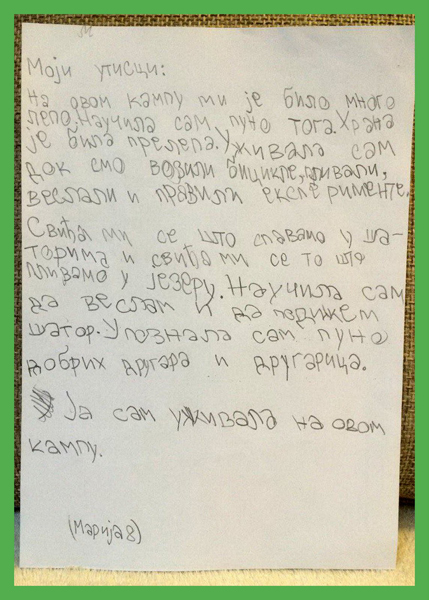 Моји утисци:
На овом кампу ми је било много
лепо. Научила сам пуно тога. Храна
је била прелепа. Уживала сам
док смо возили бицикле, пливали,
веслали и правили експерименте.
Свиђа ми се што спавамо у ша-
торима и свиђа ми се то што
пливамо у језеру. Научила сам
да веслам и да подижем
шатор. Упознала сам пуно
добрих другара и другарица.
Ја сам уживала на овом
кампу.
(Марија 8)